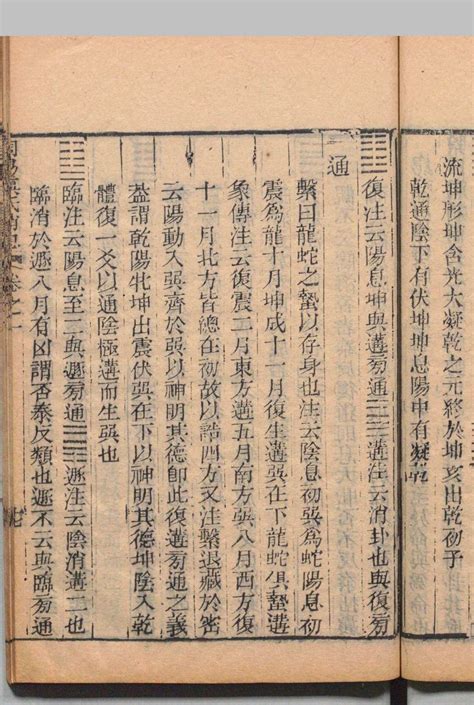 流坤形坤含光大凝乾之元終於坤亥出乾初子
乾通陰下有伏坤坤息陽中有凝乾
䷗復注云陽息坤與遘旁通䷫遘注云消卦也與復旁
通
繫曰龍蛇之蟄以存身也注云陰息初巽爲蛇陽息初
震爲龍十月坤成十一月復生遘巽在下龍蛇俱蟄遘
象傳注云復震二月東方遘五月南方巽八月西方復
十一月北方皆總在初故以誥四方又注繫退藏於密
云陽動入巽齊於巽以神明其德卽此復遘旁通之義
葢謂乾陽牝坤出震伏巽在下以神明其德坤陰入乾
體復一爻以通陰極遘而生巽也
䷒臨注云陽息至二與遯旁通䷠遯注云陰消遘二也
臨消於遯八月有凶謂否泰反類也遯不云與臨旁通